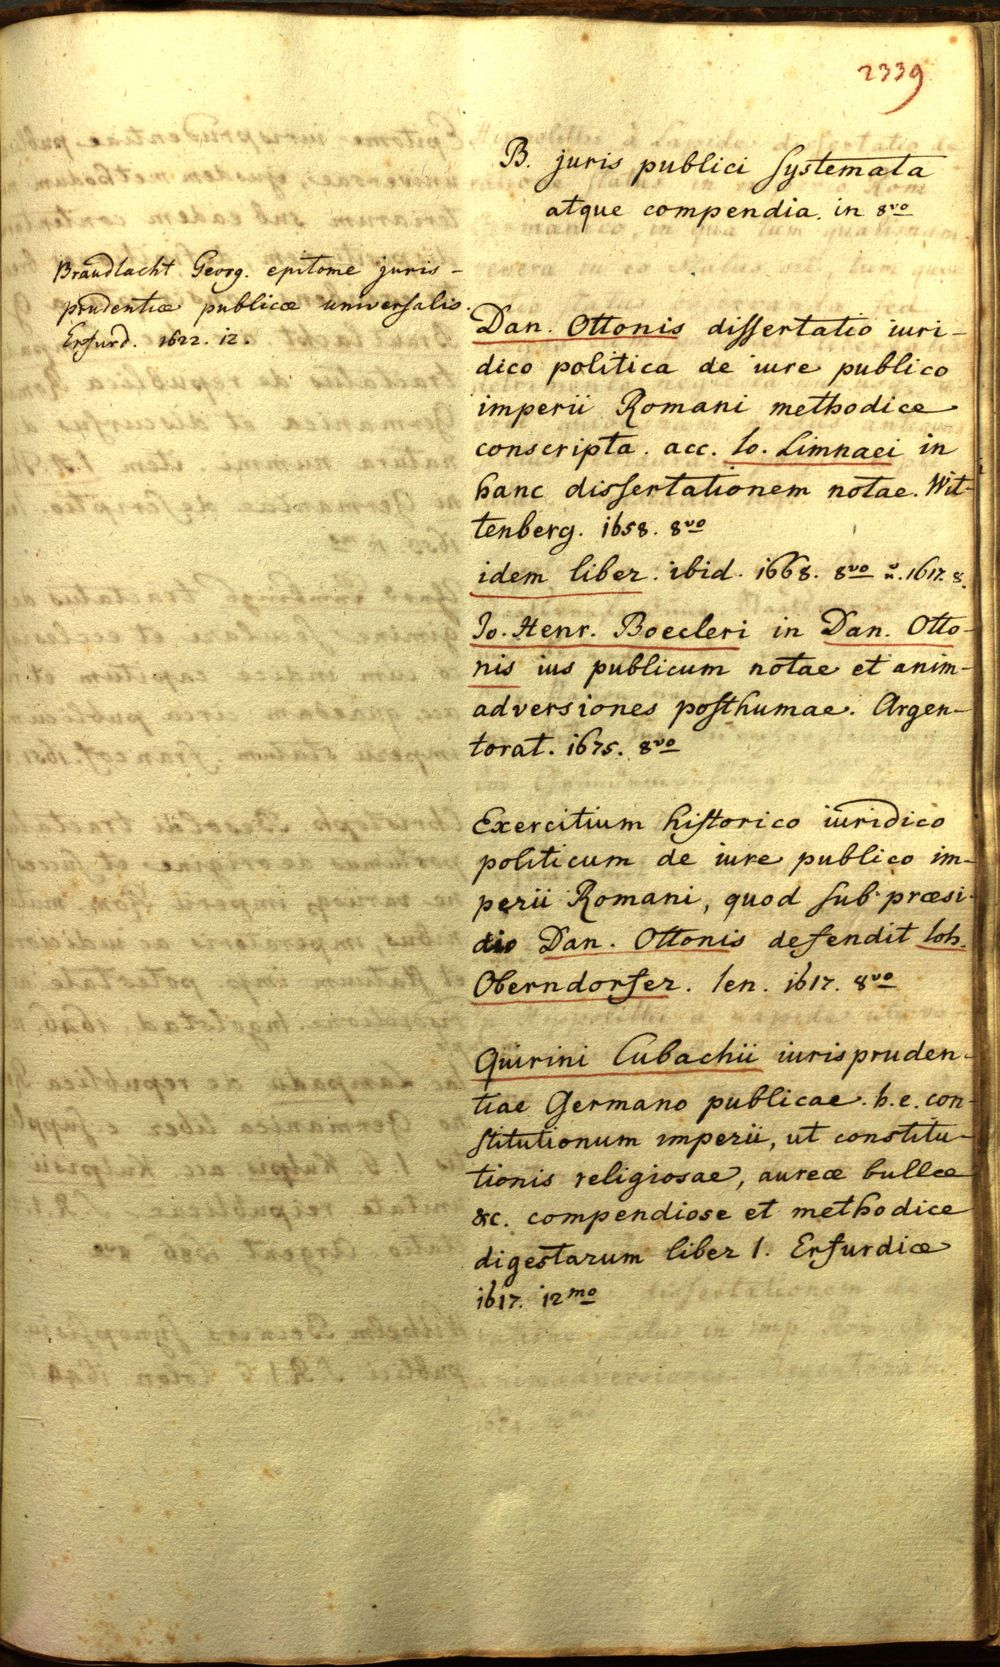 2339
B. juris publici Systemata
atque compendia in 8vo
Brandlacht Georg. epitome juris-
prudentiæ publicæ universalis.
Erfurd. 1622. 12.
Dan. Ottonis dissertatio iuri-
dico politica de iure publico
imperii Romani methodice
conscripta. acc. Io. Limnaei in
hanc dissertationem notae. Wit-
tenberg. 1658. 8vo
idem liber. ibid. 1668. 8vo u. 1617. 8.
Jo. Henr. Boecleri in Dan. Otto-
nis ius publicum notae et anim-
adversiones posthumae. Argen-
torat. 1675. 8vo
Exercitium historico iuridico
politicum de iure publico im-
perii Romani, quod sub præsi-
dio Dan. Ottonis defendit Ioh.
Oberndorfer. Ien. 1617. 8vo
Quirini Cubachii iurispruden-
tiae Germano publicae. h.e. con-
stitutionum imperii, ut constitu-
tionis religiosae, aureæ bullæ
&c. compendiose et methodice
digestarum liber 1. Erfurdiæ
1617. 12mo